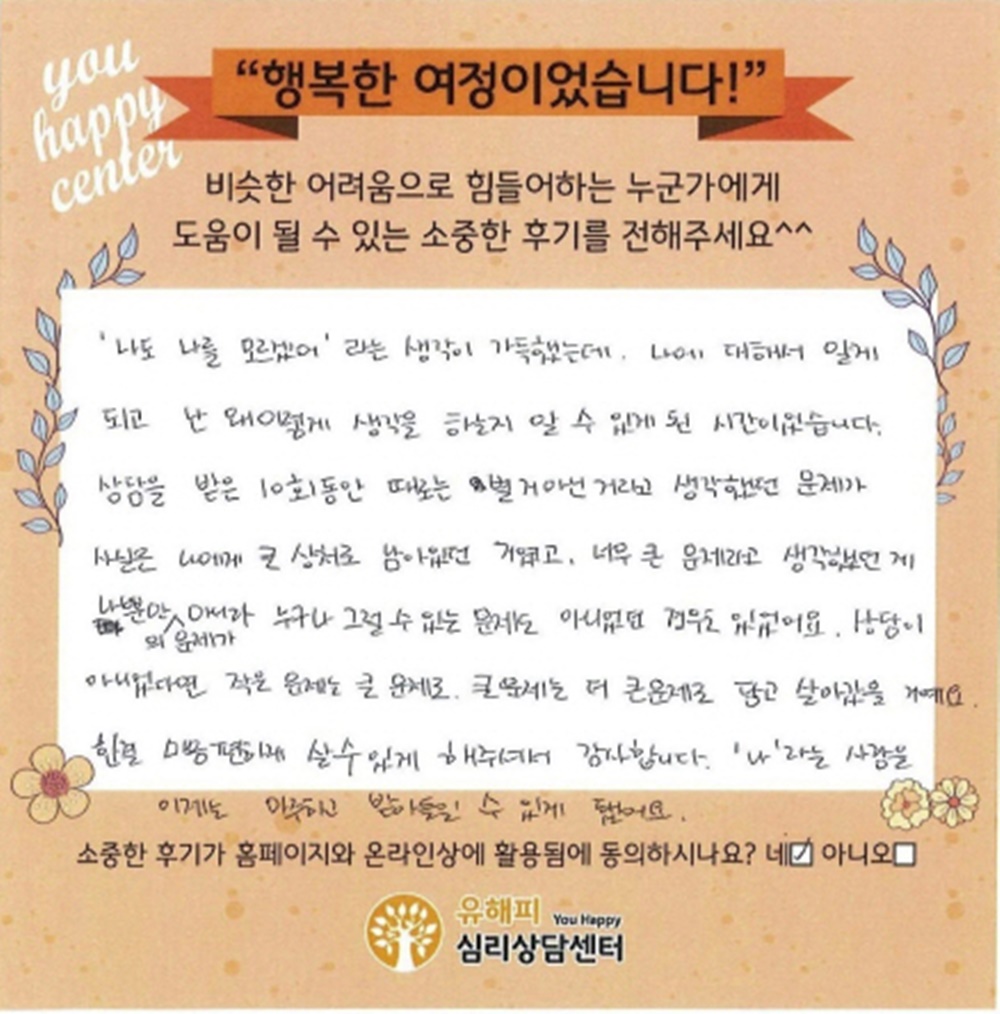 you
happy
center
“행복한 여정이었습니다!”
비슷한 어려움으로 힘들어하는 누군가에게
도움이 될 수 있는 소중한 후기를 전해주세요^^
'나도 나를 모르겠어' 라는 생각이 가득했는데, 나에 대해서 알게
되고 난 왜이렇게 생각을 하는지 알 수 있게 된 시간이었습니다.
상담을 받은 10회동안 때로는 별거아닌거라고 생각했던 문제가
사실은 나에게 큰 상처로 남아있던 거였고, 너무 큰 문제라고 생각했던 게
나뿐만 아니라 누구나 그럴 수 있는 문제도 아니었던 경우도 있었어요. 상담이
의 문제가
아니었다면 작은 문제는 큰 문제로, 큰문제는 더 큰문제로 담고 살아갔을 거예요.
한결 마음편하게 살수있게 해주셔서 감사합니다. '나'라는 사람을
이제는 마주하고 받아들일 수 있게 됐어요.
소중한 후기가 홈페이지와 온라인상에 활용됨에 동의하시나요? 네☑ 아니오☐
유해피 You Happy
심리상담센터